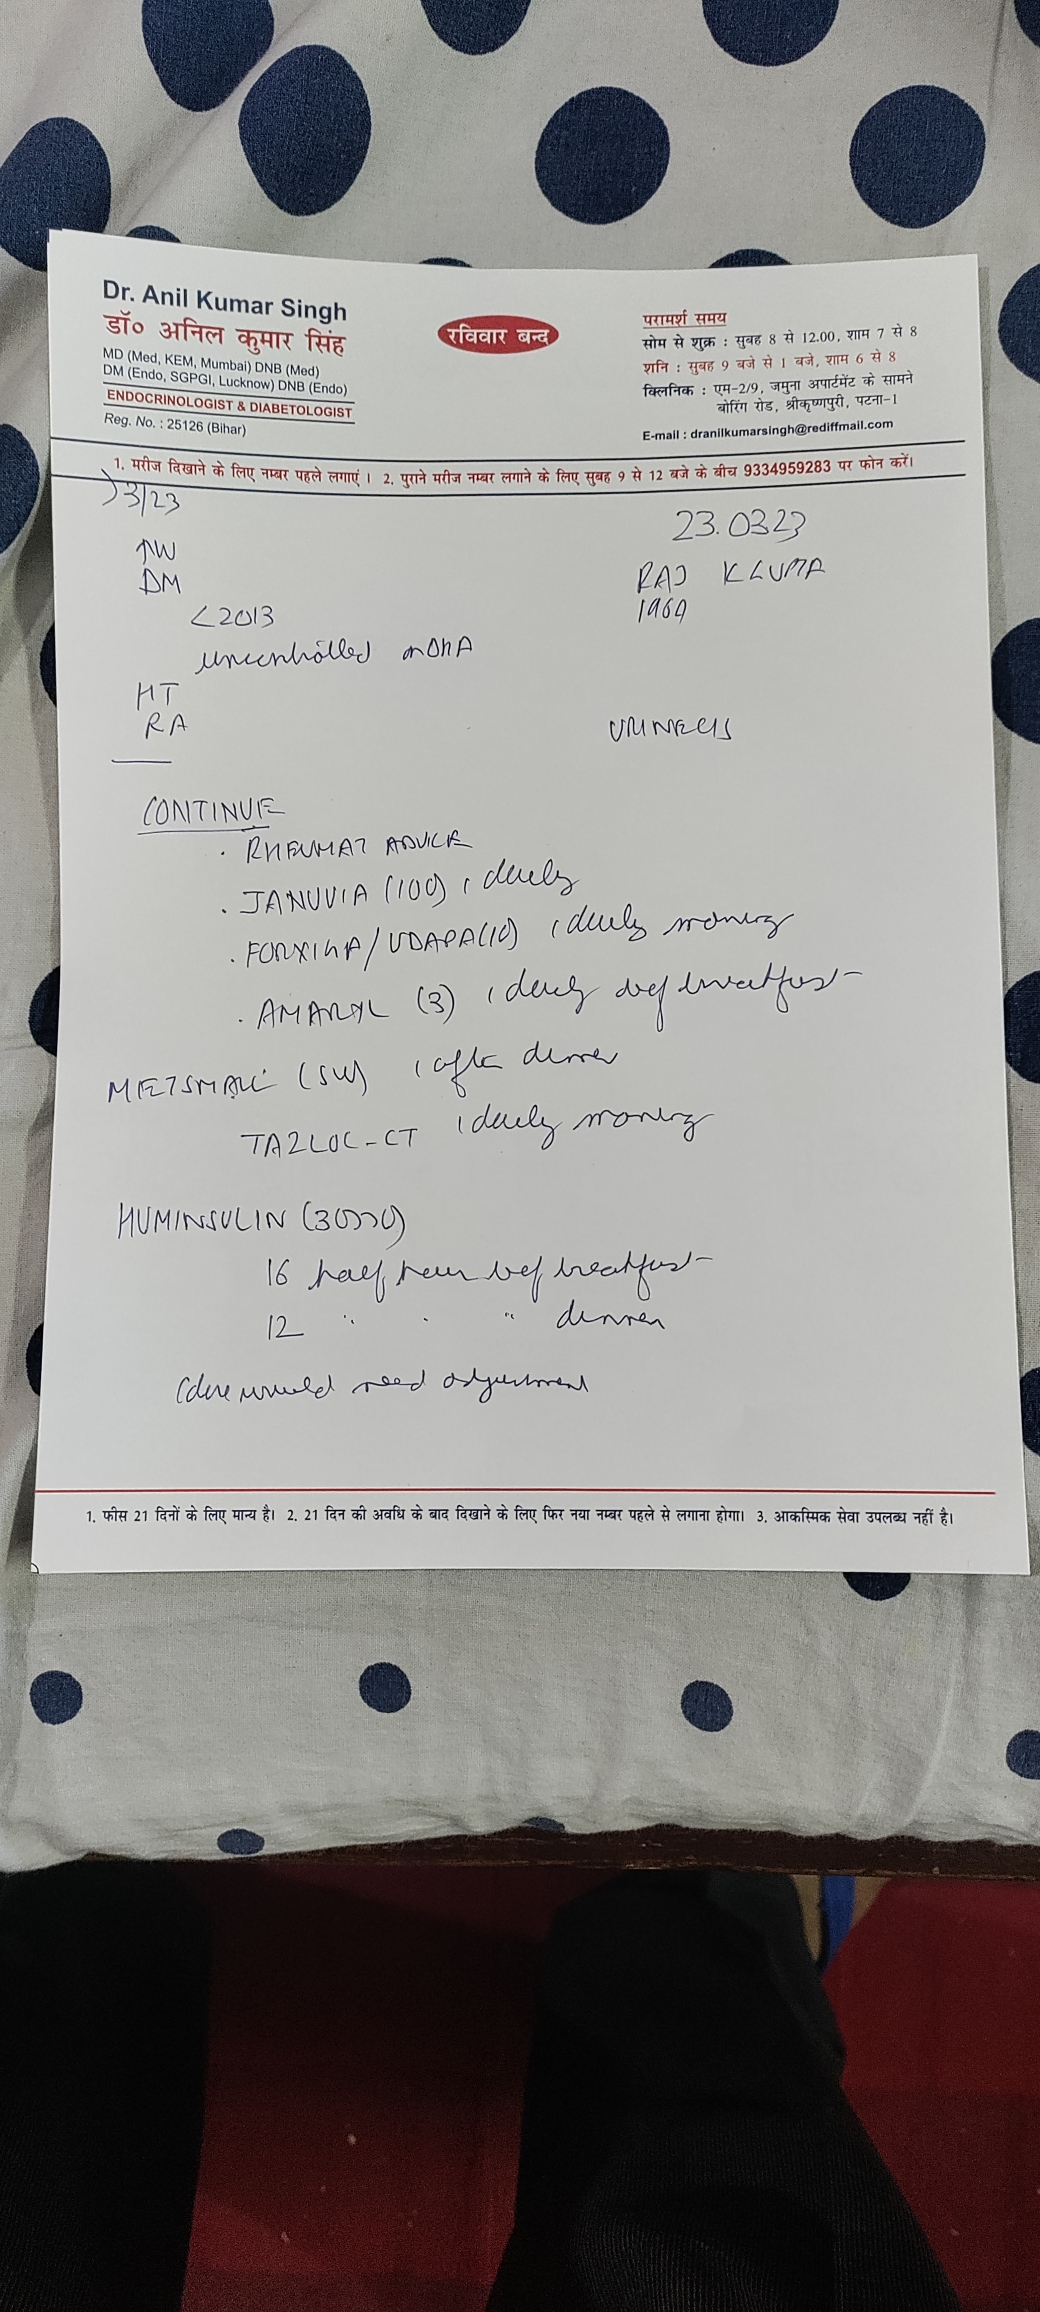 Dr. Anil Kumar Singh
डॉ० अनिल कुमार सिंह
MD (Med, KEM, Mumbai) DNB (Med)
DM (Endo, SGPGI, Lucknow) DNB (Endo)
ENDOCRINOLOGIST & DIABETOLOGIST
Reg. No. : 25126 (Bihar)
रविवार बन्द
परामर्श समय
सोम से शुक्र : सुबह 8 से 12.00, शाम 7 से 8
शनि : सुबह 9 बजे से 1 बजे, शाम 6 से 8
क्लिनिक : एम-2/9, जमुना अपार्टमेंट के सामने
बोरिंग रोड, श्रीकृष्णपुरी, पटना-1
E-mail : dranilkumarsingh@rediffmail.com
1. मरीज दिखाने के लिए नम्बर पहले लगाएं । 2. पुराने मरीज नम्बर लगाने के लिए सुबह 9 से 12 बजे के बीच 9334959283 पर फोन करें।
3/23
23.0323
↑W
DM
RAJ
<2013
uncontrolled
HT
RA
CONTINUE
. RHEUMAT ADVICE
. JANUVIA (100) 1 daily
. FORXIGA/UDAPA(10) 1 daily morning
. AMARYL (3) 1 daily bef breakfast
METSMALL 1 after dinner
TAZLOC-CT 1 daily morning
HUMINSULIN
16 half hour bef breakfast
12 " " " dinner
(dose would need adjustment
1. फीस 21 दिनों के लिए मान्य है। 2. 21 दिन की अवधि के बाद दिखाने के लिए फिर नया नम्बर पहले से लगाना होगा। 3. आकस्मिक सेवा उपलब्ध नहीं है।